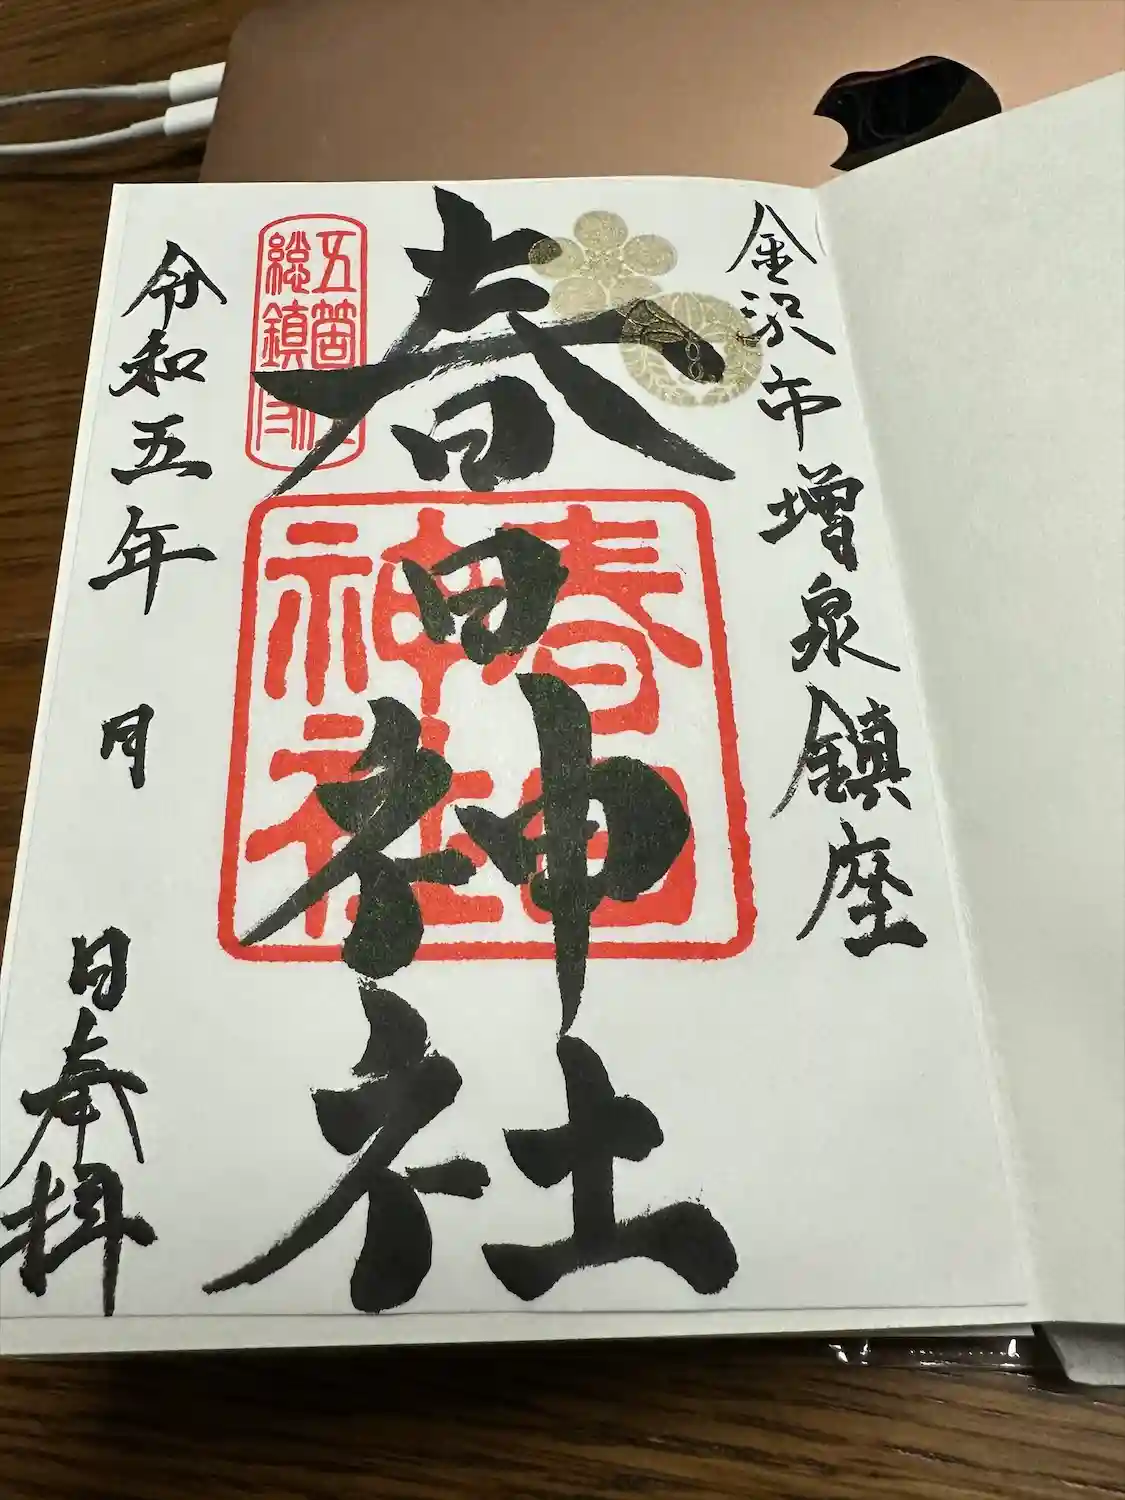 金沢市増泉鎮座
春日神社
春日神社
五箇
総鎮
令和五年 月 日奉拝